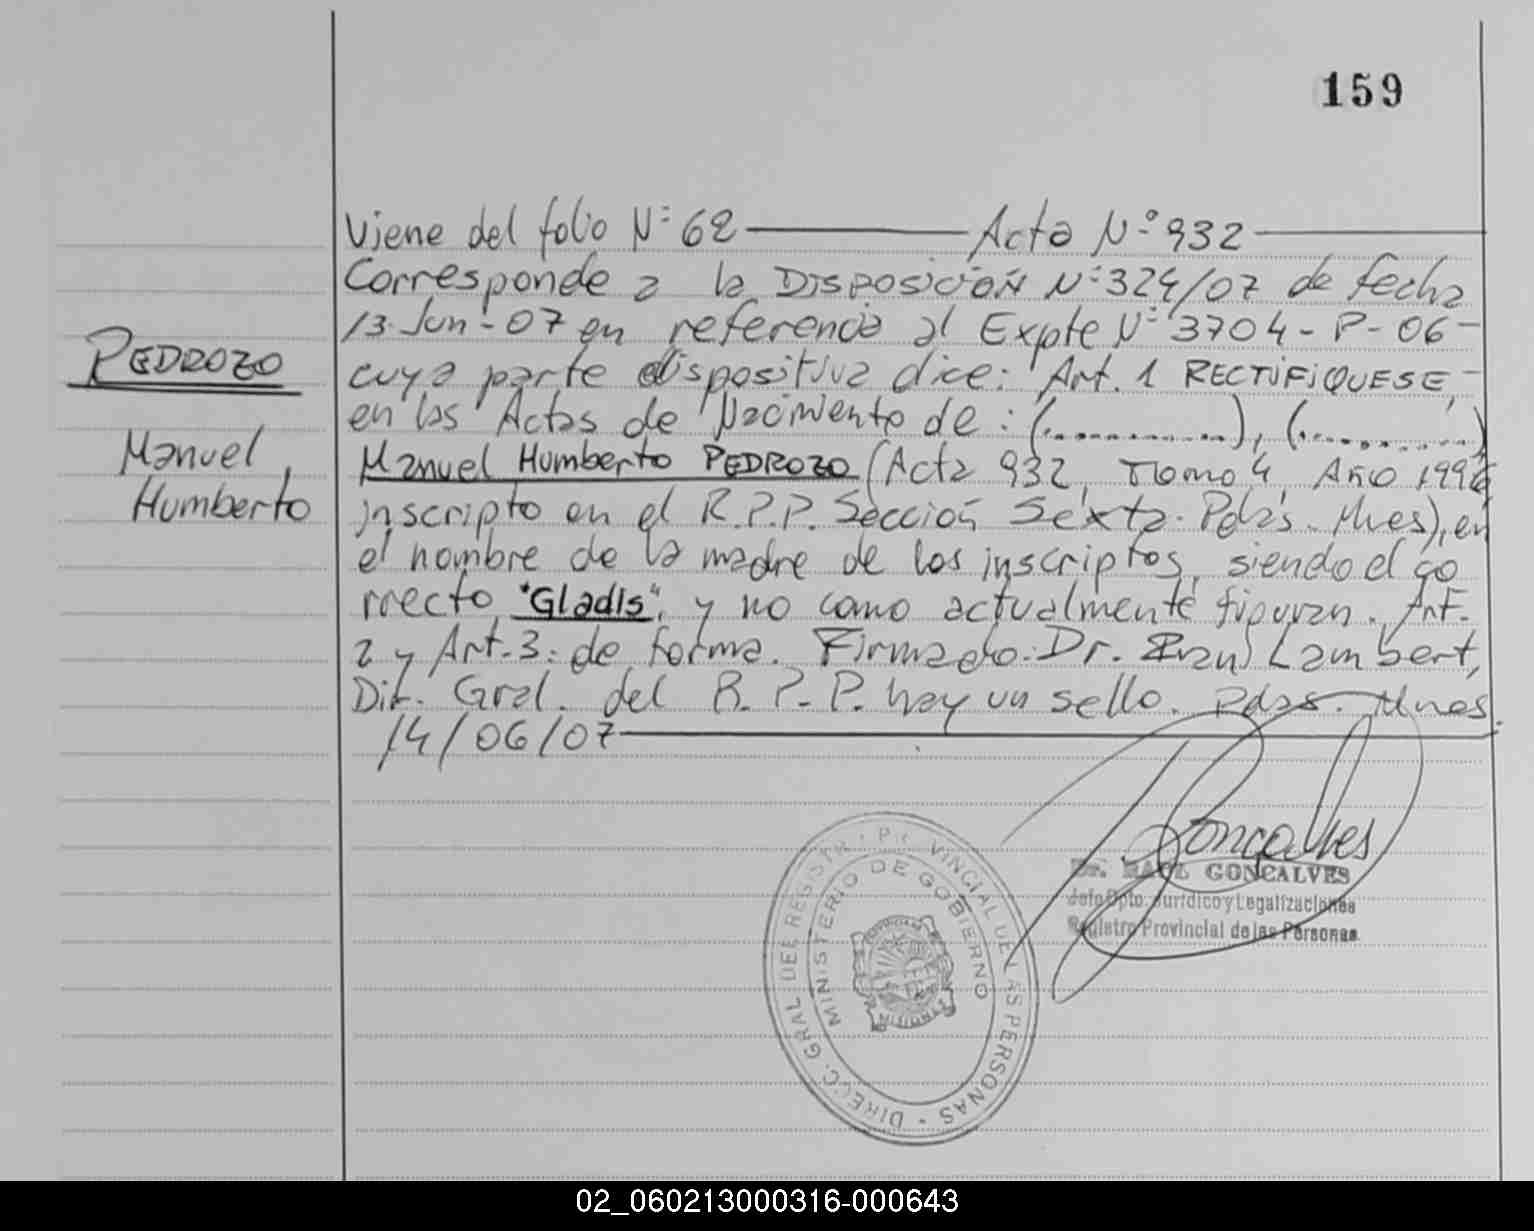 159
Viene del folio Nº 62 ——— Acta Nº 932 ———
Corresponde a la DISPOSICIÓN Nº 324/07 de fecha
13-Jun-07 en referencia al Expte Nº 3704-P-06-
PEDROZO
cuya parte dispositiva dice: Art. 1 RECTIFIQUESE,
en las Actas de Nacimiento de: (............), (............)
Manuel,
Manuel Humberto PEDROZO (Acta 932, Tomo 4, Año 1996
Humberto
inscripto en el R.P.P. Sección Sexta. Pdas. Mnes), en
el nombre de la madre de los inscriptos, siendo el co
rrecto "Gladis", y no como actualmente figuran. Art.
2 y Art. 3: de forma. Firmado: Dr. Lambert,
Dir. Gral. del R.P.P. hay un sello. Pdas. Mnes.
14/06/07 ———
Gonçalves
Dr. RAUL GONCALVES
Jefe Dpto. Jurídico y Legalizaciones
Registro Provincial de las Personas
DIRECC. GRAL DEL REGISTRO PROVINCIAL DE LAS PERSONAS
MINISTERIO DE GOBIERNO
MISIONES
02_060213000316-000643